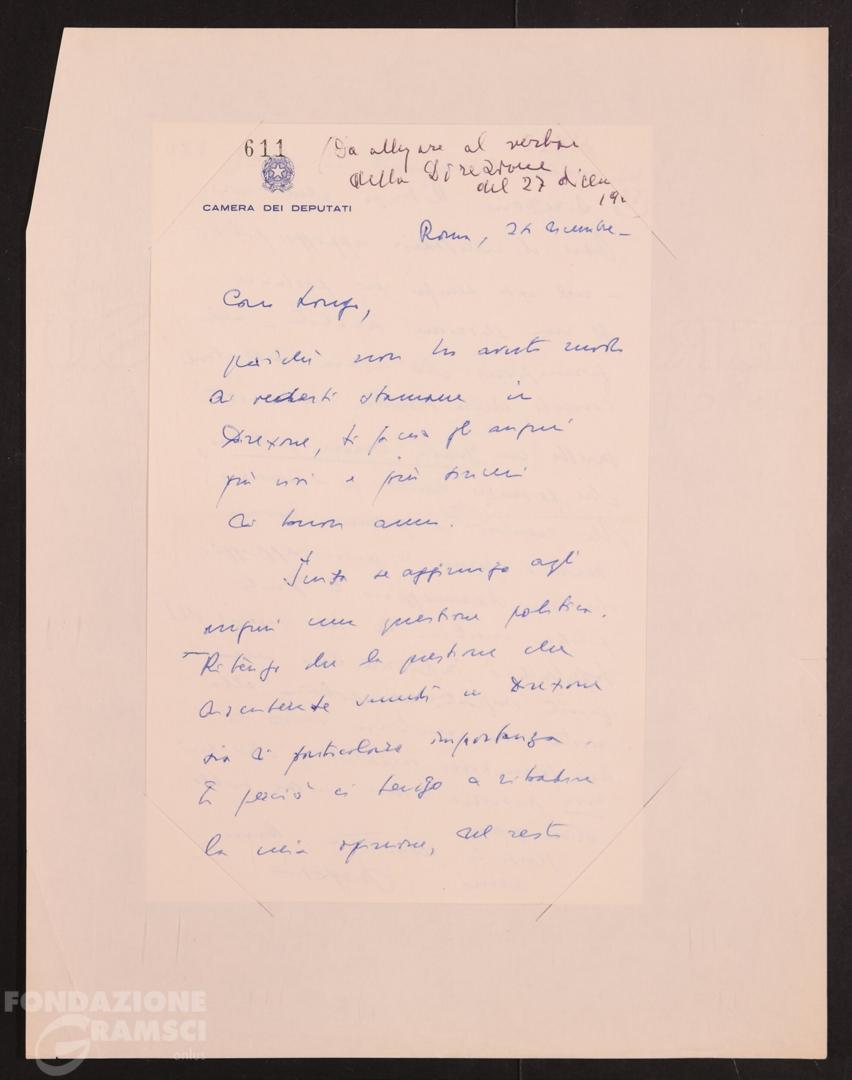 611
(Da allegare al verbale
della Direzione
del 27 dicem
CAMERA DEI DEPUTATI
Roma, 24 dicembre
Caro Longo,
poiché non ho avuto modo
di vederti stamane in
Direzione, ti faccio gli auguri
più vivi e più sinceri
di buon anno.
se aggiungo agli
auguri una questione politica.
Ritengo che la questione che
discuterete in Direzione
sia di particolare importanza.
E perciò ci tengo a ribadire
la mia opinione, del resto
FONDAZIONE
GRAMSCI
onlus